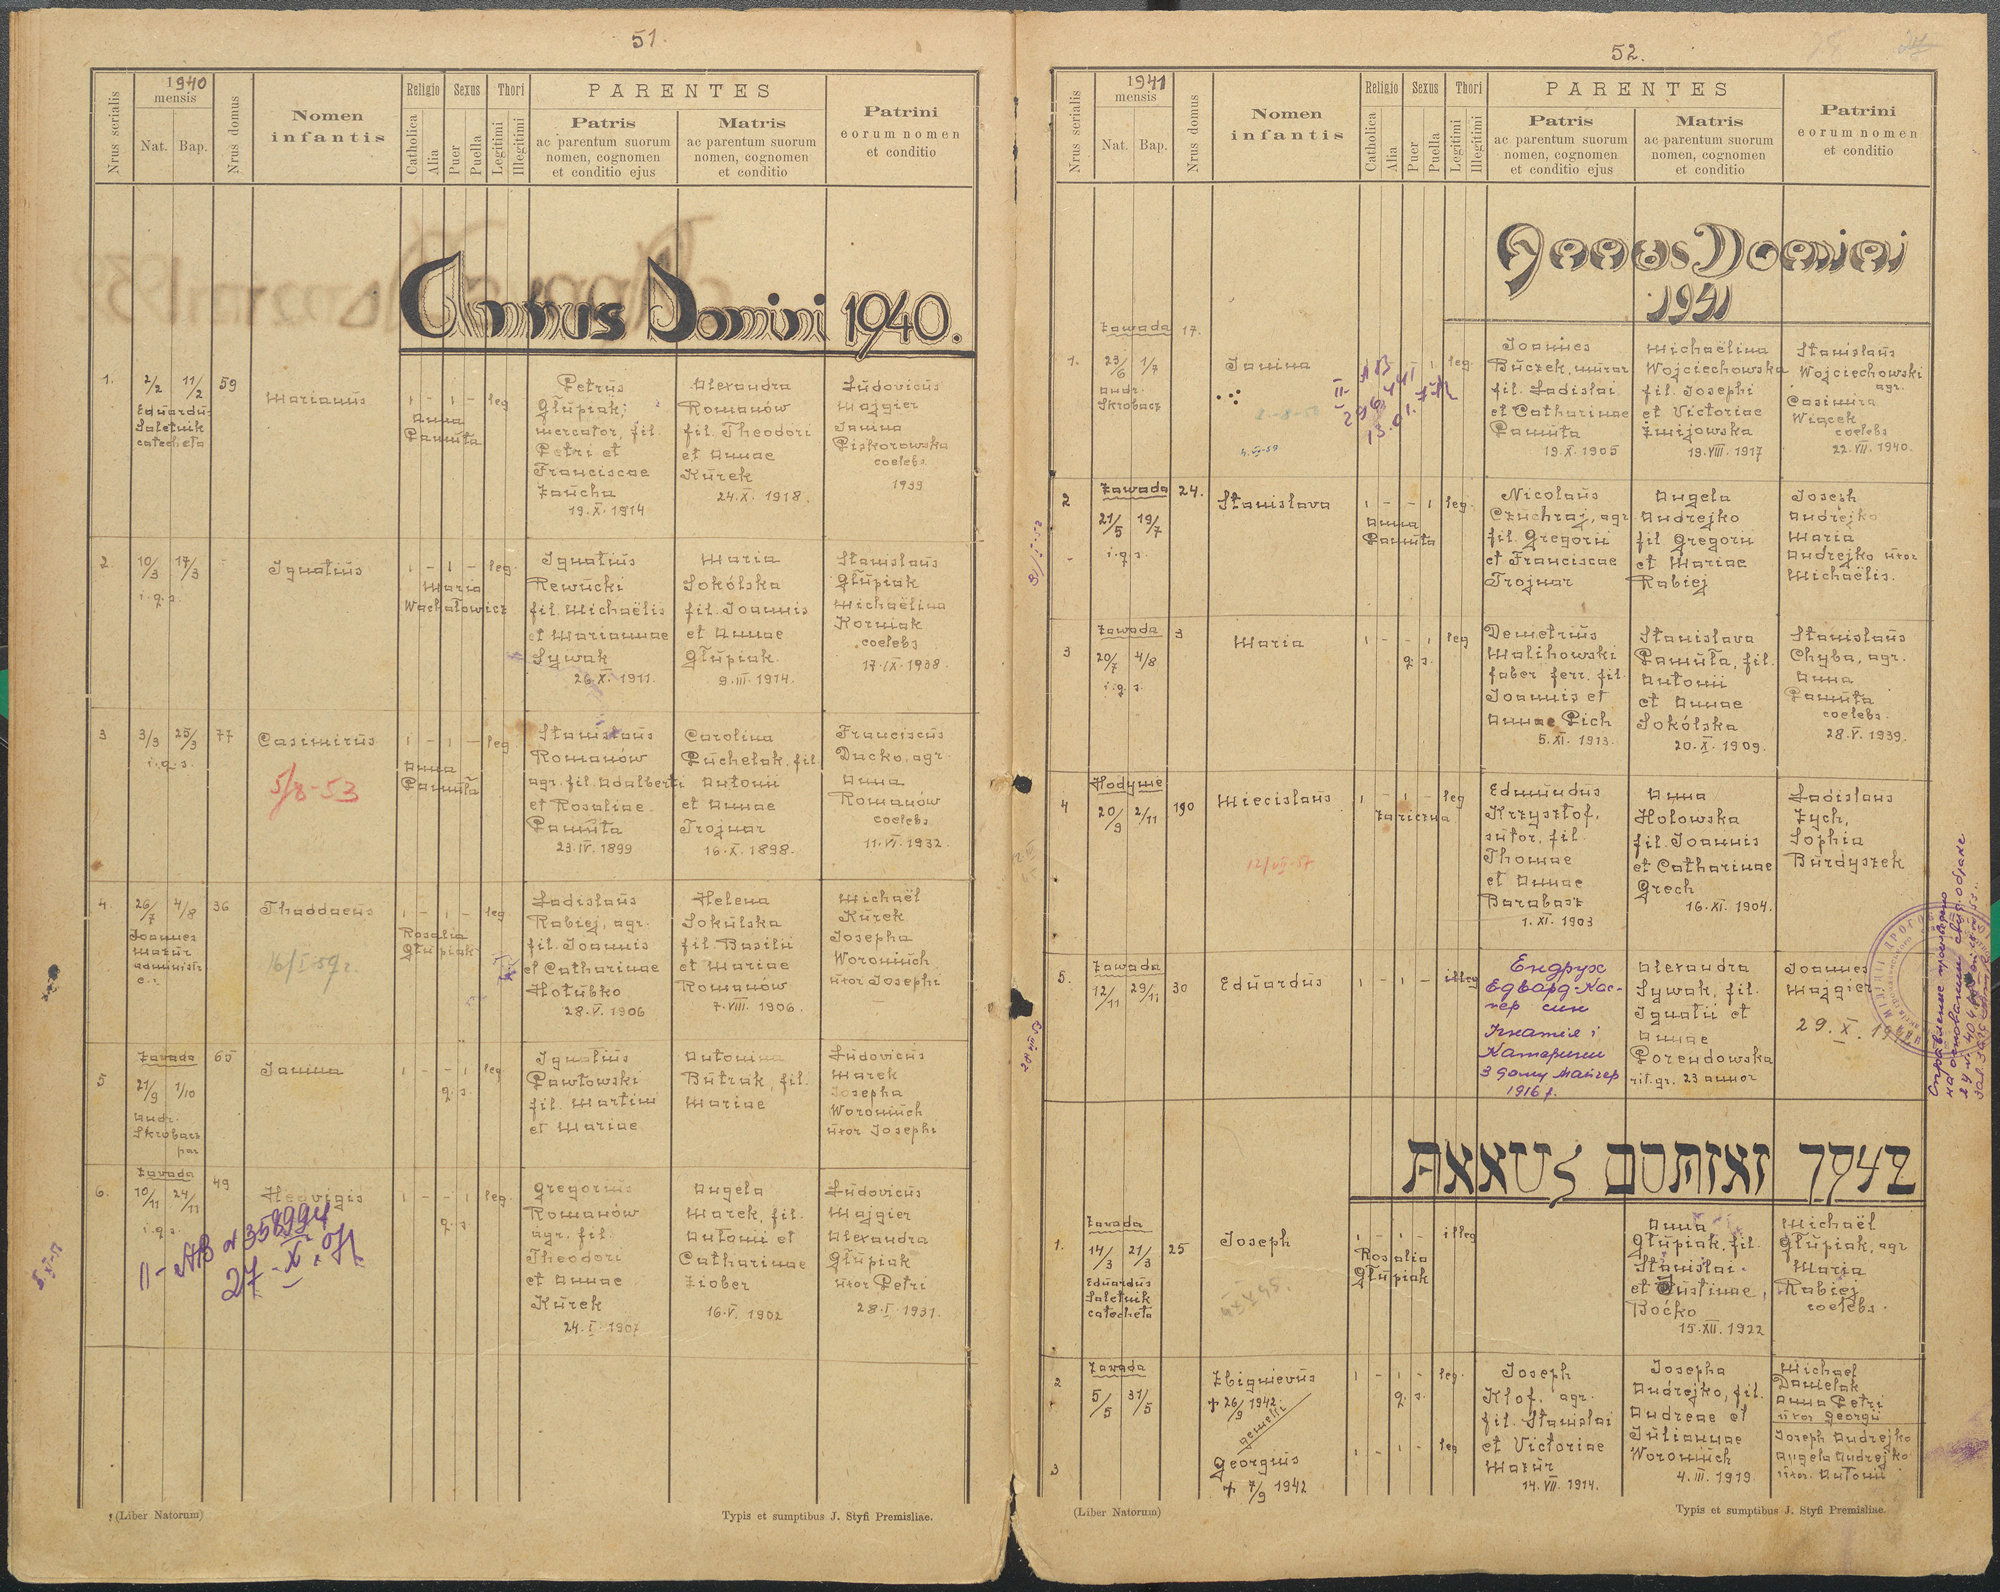 51.
Nrus serialis
1940
mensis
Nat. Bap.
Nrus domus
Nomen
infantis
Religio
Catholica
Alia
Sexus
Puer
Puella
Thori
Legitimi
Illegitimi
PARENTES
Patris
ac parentum suorum
nomen, cognomen
et conditio ejus
Matris
ac parentum suorum
nomen, cognomen
et conditio
Patrini
eorum nomen
et conditio
Annus Domini 1940.
1.
2/2 11/2 59
Eduardus
Saletnik
catecheta
Marianus
1 - 1 - leg
Anna
Pamuła
Petrus
Głupiak,
mercator, fil.
Petri et
Franciscae
Zaucha
19.X.1914
Alexandra
Romanów
fil. Theodori
et Annae
Kurek
24.X.1918.
Ludovicus
Majgier
Janina
Piskorowska
coelebs
1939
2.
10/3 17/3 -
i.q.s.
Ignatius
1 - 1 - leg.
Maria
Wachałowicz
Ignatius
Rewucki
fil. Michaëlis
et Mariannae
Sywak
26.X.1911.
Maria
Sokólska
fil. Joannis
et Annae
Głupiak.
9.III.1914.
Stanislaus
Głupiak
Michaëlina
Korniak
coelebs
17.IX.1938.
3
3/3 25/3 77
i.q.s.
Casimirus
5/8-53
1 - 1 - leg
Anna
Pamuła
Stanislaus
Romanów
agr. fil. Adalberti
et Rosaliae
Pamuła
23.IV.1899
Carolina
Puchelak, fil.
Antonii
et Annae
Trojnar
16.X.1898.
Franciscus
Ducko, agr.
Anna
Romanów
coelebs
11.VI.1932.
4.
26/7 4/8 36
Joannes
Mazur
administr
e.
Thaddaeus
16/I-59г.
1 - 1 - leg
Rosalia
Głupiak
Ladislaus
Rabiej, agr.
fil. Joannis
et Catharinae
Hołubko
28.V.1906
Helena
Sokulska
fil. Basilii
et Mariae
Romanów
7.VIII.1906.
Michaël
Kurek
Josepha
Woroniuch
uxor Josephi
5
Zavada 65
21/9 1/10
Andr.
Skrobacz
par
Janina
1 - - 1 leg
q. s.
Ignatius
Pawłowski
fil. Martini
et Mariae
Antonina
Butrak, fil.
Mariae
Ludovicus
Marek
Josepha
Woroniuch
uxor Josephi
6.
Zavada 49
10/11 24/11
i.q.s.
Hedvigis
1 - - 1 leg.
q. s.
II-АВ № 358994
27-X.
Gregorius
Romanów
agr. fil.
Theodori
et Annae
Kurek
24.I.1907
Angela
Marek, fil.
Antonii et
Catharinae
Ziober
16.V.1902
Ludovicus
Majgier
Alexandra
Głupiak
uxor Petri
28.I.1931.
(Liber Natorum)
Typis et sumptibus J. Styfi Premisliae.
52.
Nrus serialis
1941
mensis
Nat. Bap.
Nrus domus
Nomen
infantis
Religio
Catholica
Alia
Sexus
Puer
Puella
Thori
Legitimi
Illegitimi
PARENTES
Patris
ac parentum suorum
nomen, cognomen
et conditio ejus
Matris
ac parentum suorum
nomen, cognomen
et conditio
Patrini
eorum nomen
et conditio
Annus Domini
1941
1.
Zawada 17.
23/6 1/7
Andr.
Skrobacz
Janina
leg.
Joannes
Buczek, murar
fil. Ladislai
et Catharinae
Pamuła
19.X.1905
Michaëlina
Wojciechowska
fil. Josephi
et Victoriae
Żmijowska
19.VIII.1917
Stanislaus
Wojciechowski
agr.
Casimira
Wiącek
coelebs
22.VII.1940.
2
Zawada 24.
21/5 19/7
i.q.s.
Stanislava
1 - - 1 leg.
Anna
Pamuła
Nicolaus
Czuchraj, agr
fil. Gregorii
et Franciscae
Trojnar
Angela
Andrejko
fil. Gregorii
et Mariae
Rabiej
Joseph
Andrejko
Maria
Andrejko uxor
Michaëlis.
3
Zawada 3
20/7 4/8
i.q.s.
Maria
1 - - 1 leg
q. s.
Demetrius
Malihowski
faber ferr. fil.
Joannis et
Annae Pich
5.XI.1913.
Stanislava
Pamuła, fil.
Antonii
et Annae
Sokólska
20.X.1909.
Stanislaus
Chyba, agr.
Anna
Pamuła
coelebs.
28.V.1939.
4
Hodynie
20/9 2/11 190
Miecislaus
12/VII-57
1 - 1 - leg
Zariczna
Edmundus
Krzysztof,
sutor, fil.
Thomae
et Annae
Barabasz
1.XI.1903
Anna
Hołowska
fil. Joannis
et Catharinae
Grech
16.XI.1904.
Ladislaus
Zych,
Sophia
Burdyszek
5.
Zawada
12/11 29/11 30
Eduardus
1 - 1 - illeg
Ендрух
Едвард-Кас-
пер син
Ігнатія і
Катерини
з дому Майгер
1916 р.
Alexandra
Sywak, fil.
Ignatii et
Annae
Porendowska
rit. gr. 23 annor
Joannes
Majgier
29.X.19
ANNUS DOMINI 1942
1.
Zavada
14/3 21/3 25
Eduardus
Saletnik
catecheta
Joseph
1 - 1 - illeg
Rosalia
Głupiak
Anna
Głupiak, fil.
Stanislai
et Justinae,
Boćko
15.XII.1922
Michaël
Głupiak, agr
Maria
Rabiej
coelebs.
2
Zavada
5/5 31/5
Zbignievus
+ 26/9 1942.
gemelli
1 - 1 - leg.
q. s.
Joseph
Klof, agr.
fil. Stanislai
et Victoriae
Mazur
14.VII.1914.
Josepha
Andrejko, fil.
Andreae et
Juliannae
Woroniuch
4.III.1919.
Michael
Danielak
Anna Petri
uxor Georgii
3
Georgius
+ 7/9 1942
1 - 1 - leg
Joseph Andrejko
Angela Andrejko
uxor. Antonii
(Liber Natorum)
Typis et sumptibus J. Styfi Premisliae.